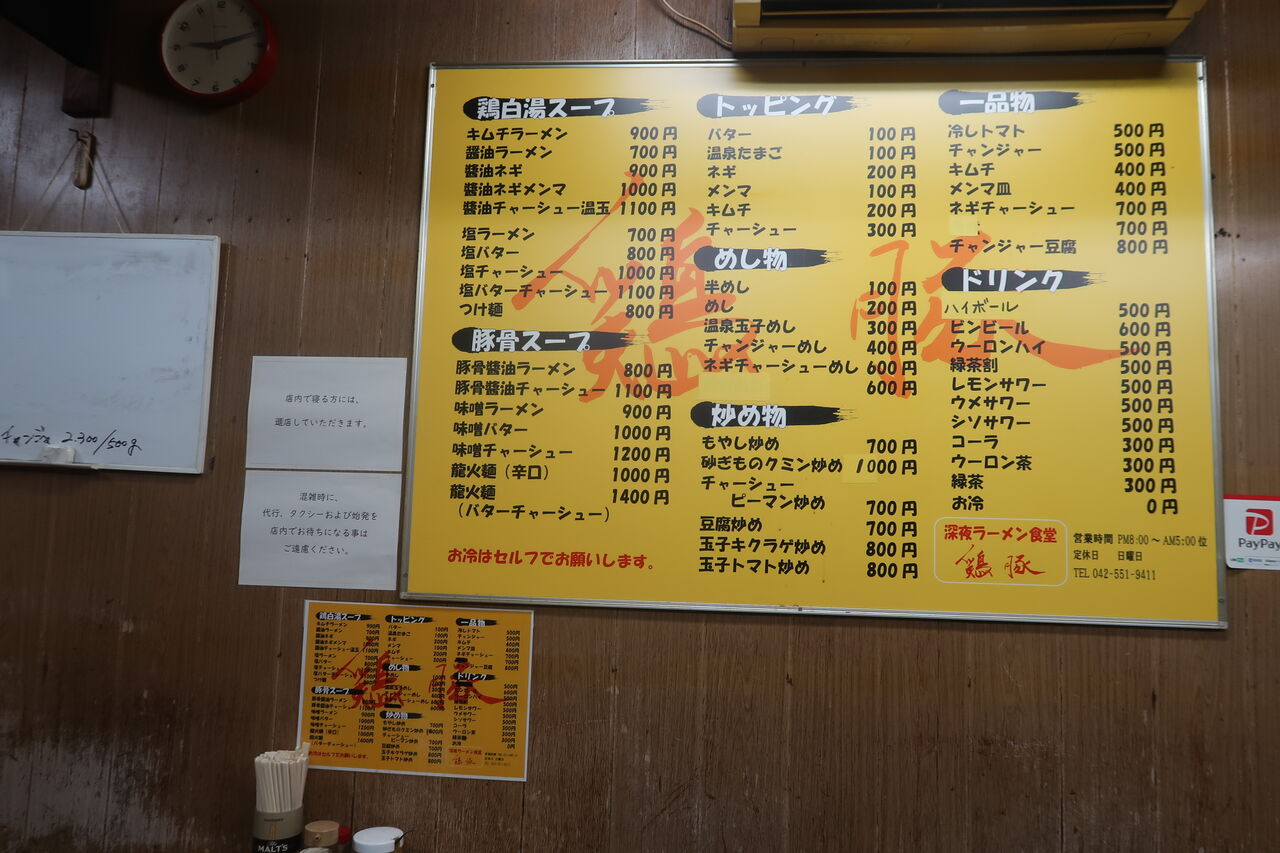 鶏白湯スープ
キムチラーメン 900円
醤油ラーメン 700円
醬油ネギ 900円
醬油ネギメンマ 1000円
醬油チャーシュー温玉 1100円
塩ラーメン 700円
塩バター 800円
塩チャーシュー 1000円
塩バターチャーシュー 1100円
つけ麺 800円
豚骨スープ
豚骨醬油ラーメン 800円
豚骨醬油チャーシュー 1100円
味噌ラーメン 900円
味噌バター 1000円
味噌チャーシュー 1200円
龍火麺（辛口） 1000円
龍火麺 1400円
（バターチャーシュー）
お冷はセルフでお願いします。
トッピング
バター 100円
温泉たまご 100円
ネギ 200円
メンマ 100円
キムチ 200円
チャーシュー 300円
めし物
半めし 100円
めし 200円
温泉玉子めし 300円
チャンジャーめし 400円
ネギチャーシューめし 600円
600円
炒め物
もやし炒め 700円
砂ぎものクミン炒め 1000円
チャーシュー
ピーマン炒め 700円
豆腐炒め 700円
玉子キクラゲ炒め 800円
玉子トマト炒め 800円
一品物
冷しトマト 500円
チャンジャー 500円
キムチ 400円
メンマ皿 400円
ネギチャーシュー 700円
700円
チャンジャー豆腐 800円
ドリンク
ハイボール 500円
ビンビール 600円
ウーロンハイ 500円
緑茶割 500円
レモンサワー 500円
ウメサワー 500円
シソサワー 500円
コーラ 300円
ウーロン茶 300円
緑茶 300円
お冷 0円
深夜ラーメン食堂
鶏豚
営業時間 PM8:00～AM5:00位
定休日 日曜日
TEL 042-551-9411
鶏豚
店内で寝る方には、
退店していただきます。
混雑時に、
代行、タクシーおよび始発を
店内でお待ちになる事は
ご遠慮ください。
2.300/500g
PayPay
MALT'S